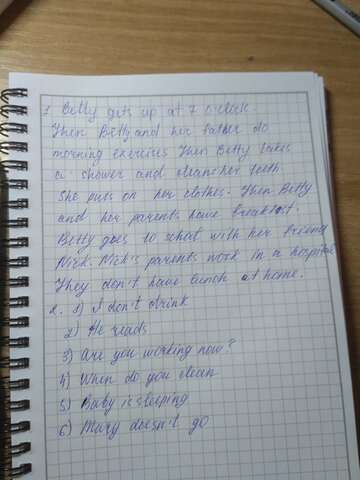 1 Betty gets up at 7 o'clock.
Then Betty and her father do
morning exercises Then Betty takes
a shower and cleans her teeth.
She puts on her clothes. Then Betty
and her parents have breakfast.
Betty goes to school with her friend
Nick. Nick's parents work in a hospital
They don't have lunch at home.
2. 1) I don't drink
2) He reads
3) Are you working now?
4) When do you clean
5) Baby is sleeping
6) Mary doesn't go